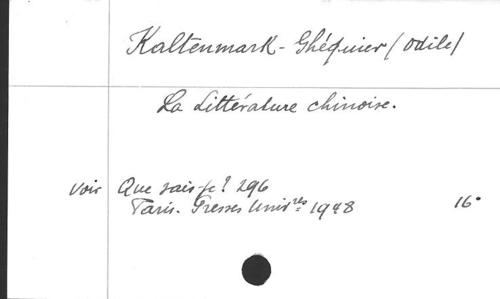 Kaltenmark-Ghéquier (Odile)
La Littérature chinoise.
voir Que sais-je? 296
Paris. Presses Univ.res 1948 16°